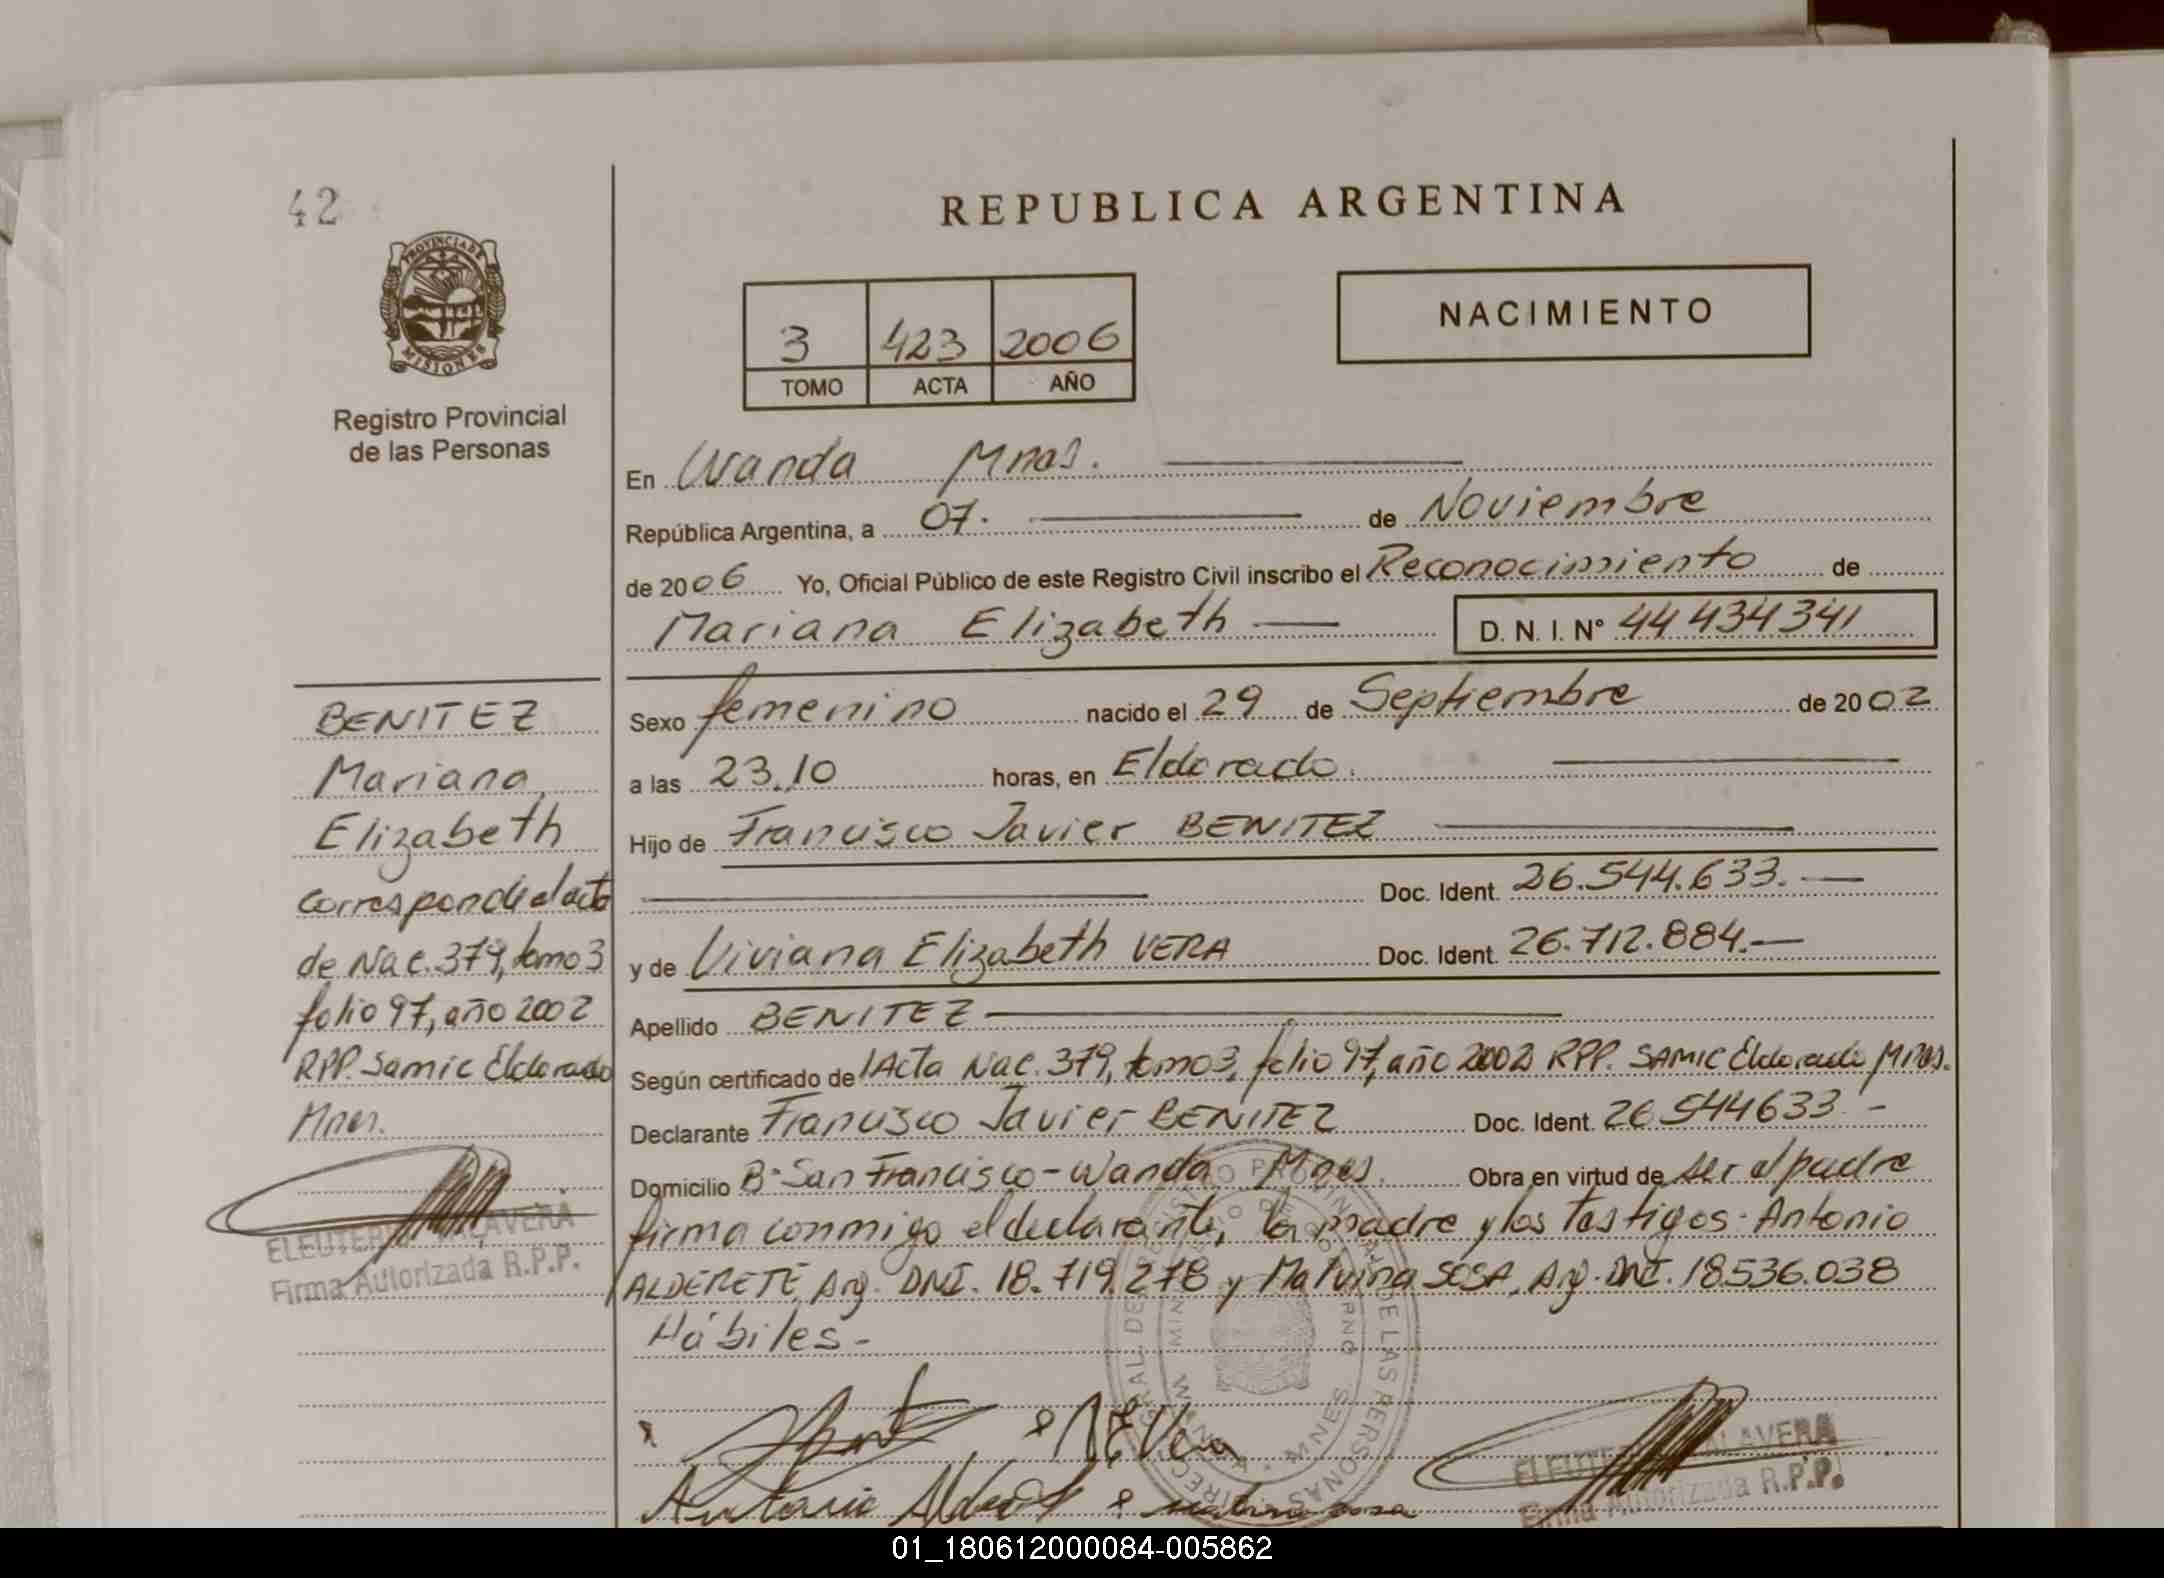 42
PROVINCIA DE
MISIONES
Registro Provincial
de las Personas
REPUBLICA ARGENTINA
3 423 2006
TOMO ACTA AÑO
NACIMIENTO
En Wanda Mnes.
República Argentina, a 07. de Noviembre
de 2006 Yo, Oficial Público de este Registro Civil inscribo el Reconocimiento de
Mariana Elizabeth D. N. I. N° 44 434 341
Sexo femenino nacido el 29 de Septiembre de 2002
a las 23.10 horas, en Eldorado.
Hijo de Francisco Javier BENITEZ
Doc. Ident. 26.544.633.
y de Viviana Elizabeth VERA Doc. Ident. 26.712.884.
Apellido BENITEZ
Según certificado de lActa Nac. 379, tomo 3, folio 97, año 2002 RPP. SAMIC Eldorado Mnes.
Declarante Francisco Javier BENITEZ Doc. Ident. 26544633.-
Domicilio B° San Francisco - Wanda, Mnes. Obra en virtud de ser el padre
firma conmigo el declarante, la madre y los testigos: Antonio
ALDERETE, Arg. DNI. 18.719.278 y Malvina SOSA, Arg. DNI. 18.536.038
Hábiles -
BENITEZ
Mariana
Elizabeth
corresponde al acta
de Nac. 379, tomo 3
folio 97, año 2002
RPP. Samic Eldorado
Mnes.
ELEUTERIO TALAVERA
Firma Autorizada R.P.P.
VEVera
Antonio Alderete malvina sosa
ELEUTERIO TALAVERA
Firma Autorizada R.P.P.
01_180612000084-005862